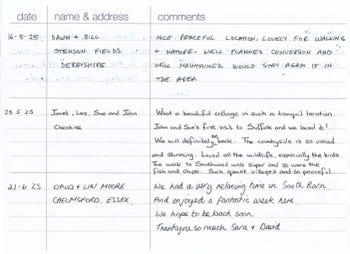 date name & address comments
16-5-25 DAWN + BILL NICE PEACEFUL LOCATION, LOVELY FOR WALKING
STENSON FIELDS + NATURE. WELL PLANNED CONVERSION AND
DERBYSHIRE WELL MAINTAINED WOULD STAY AGAIN IF IN
THE AREA.
23.5.25 Janet, Les, Sue and John What a beautiful cottage in such a tranquil location.
Cheshire John and Sue's first visit to Suffolk and we loved it!
We will definitely be back. The countryside is so varied
and stunning. Loved all the wildlife, especially the birds.
The walk to Southwold was super and so were the
fish and chips. Such quaint villages and so peaceful
21-6-25 DAVID + LIN MOORE We had a very relaxing time in South Barn.
CHELMSFORD, ESSEX. And enjoyed a fantastic week here.
We hope to be back soon.
Thankyou so much Sara + David